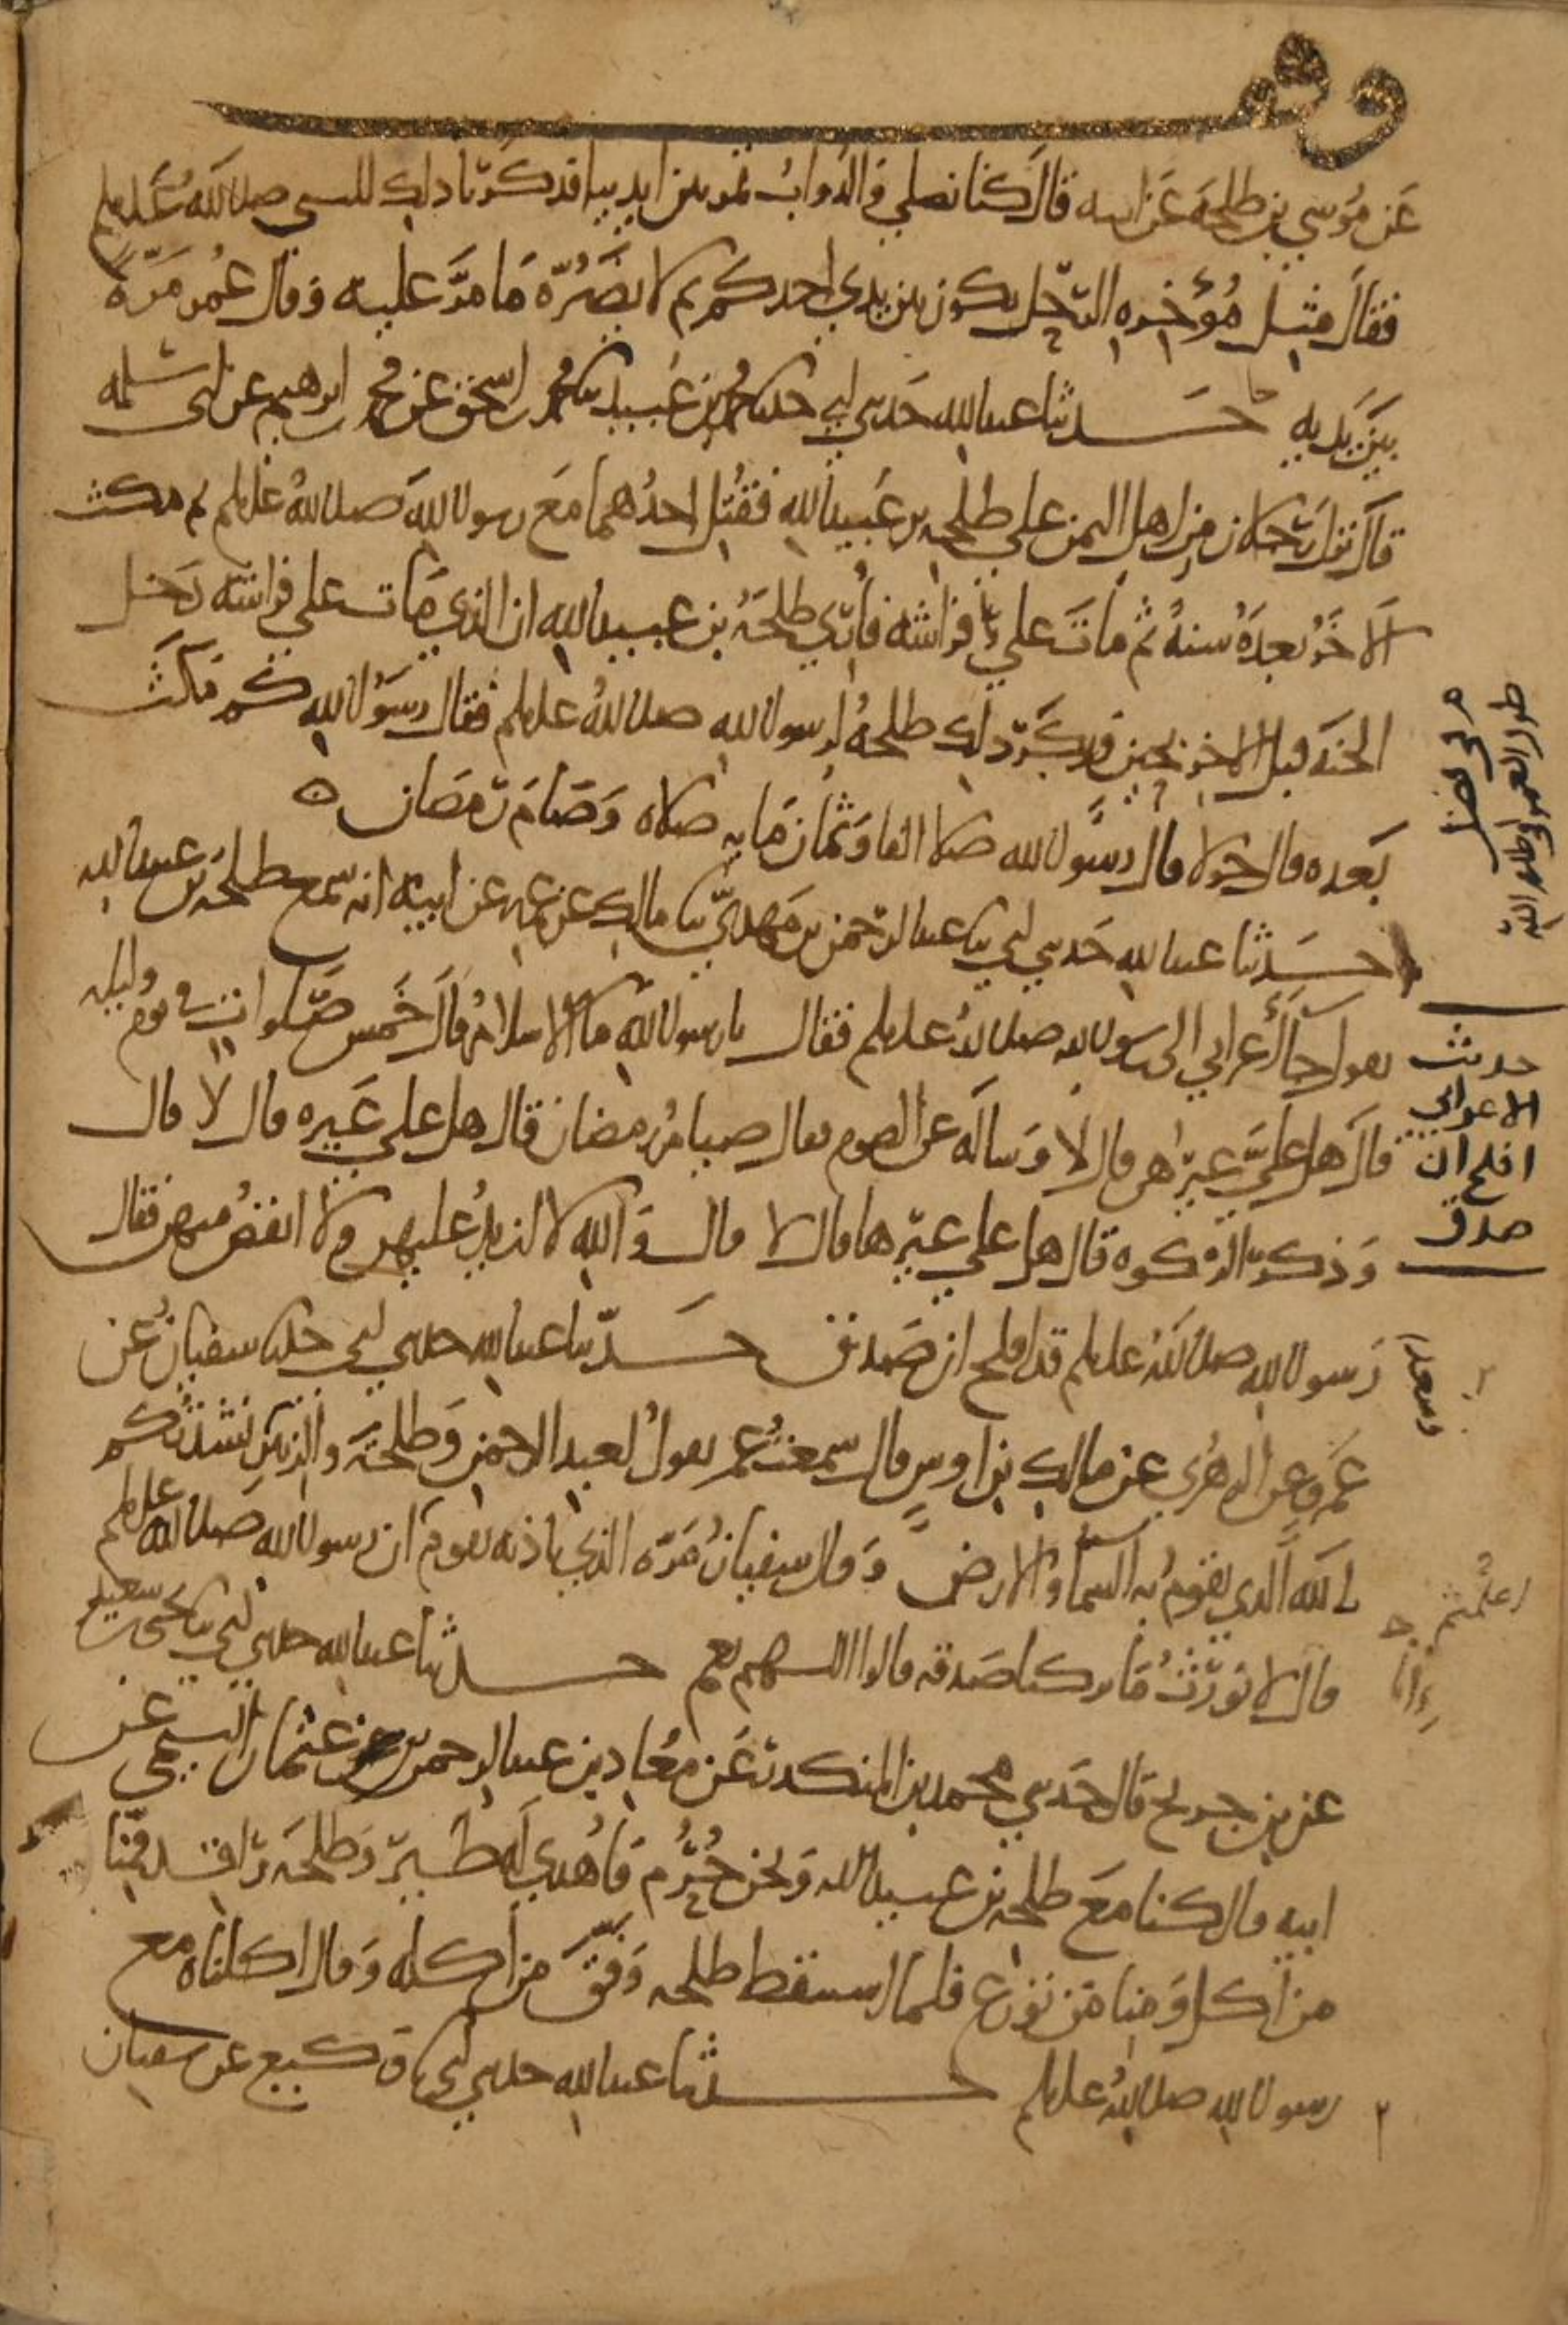 وقف
عَن مُوسي بن طلحةَ عَن ابيه قالَ كنا نصلي وَالدوابُ تمر بين ايدينا فذكرنا ذلك للنبي صلى الله عَليه وسلم
فقالَ مثِل مُؤخرِه الرَّحِل يكون بين يدي احدكم ثم لا يضَرُّه مَا مرَّ عليه وَقال عُمر مَرّةً
بَين يَديه حَدثنا عبدالله حَدثني ابي حدثنا محمد بن عُبيد ثنا محمد بن اسحق عن محمد بن ابرهيم عن ابي سلمه
قالَ نزلَ رَجلان مِن اهل اليمن علي طلحه بن عُبيدالله فقُتِل احدُهما مَع رسول الله صلى الله عليه وسلم ثم مكث
الاخَرُ بعدَهُ سنهً ثم ماتَ علي فراشه فأُري طلحَةُ بن عبيدالله ان الذي مَات علي فراشه دَخل
الجنه قبل الاخر بحين فذكَر ذلك طلحهُ لرسول الله صلى الله عليه وسلم فقال رسَوُل الله كم مَكثَ
بَعده قال حولا فال رسَوُل الله صلا الفا وَثمان مَايه صلاه وَصَامَ رمَضان ه
حَدثنا عبدالله حَدثني ابي ثنا عبدالرحمن بن مَهديّ ثنا مالك عن عمه عن ابيه انه سمع طلحه بن عبيدالله
يقول جآ أَعرابي الى رسول الله صلى الله عليه وسلم فقال يا رسول الله ما الاسلامُ قالَ خَمس صَّلوات في يوم وليله
قالَ هل عليَّ غيرُهن قال لا وَسالَه عن الصوم فقال صيامُ رمضان قال هل علي غَيره قال لا قال
وَذكر الزكوه قال هل علي غيرها قال لا قال وَالله لا ازيدُ عليهن ولا انقصُ منهن فقال
رَسول الله صلى الله عليه وسلم قد افلح ان صَدق حَدّثنا عبدالله حدثني ابي حدثنا سفيانُ عن
عَمرو عن الزهري عن مالك بن اوسٍ قال سمعتُ عمر يقولُ لعبد الرحمن وَطلحَة والزبير نشدتكم
بالله الَّذي تقومُ به السماُ والارض وَقال سفيانُ مَرّه الذي باذنه تقوم ان رسول الله صَلى الله عليه وسلم
قال لا نوَرّثُ مَا تركنا صَدقه قالوا اللهم نعم حدثنا عبدالله حدثني ابي ثنا يحيى بن سعيد
عن بن جريح قال حَدثني محمد بن المنكدر عَن مُعاذ بن عبدالرحمن بن عثمان التيمي عن
ابيه قال كنا مَع طلحه بن عبيدالله وَنحن حُرُم فأُهدي لَه طيرٌ وَطلحَه راقد فمِنّا
من أكل وَمِنا مَن تورع فلما استيقظ طلحه وَفَّق من أكله وَقال اكلناه مع
رسول الله صلى الله عليه وسلم حدثنا عبدالله حدثني ابي ثنا وَكيع عن سفيان
حديث
الاعرابي
افلح ان
صدق
وسعدا
اعلمتم